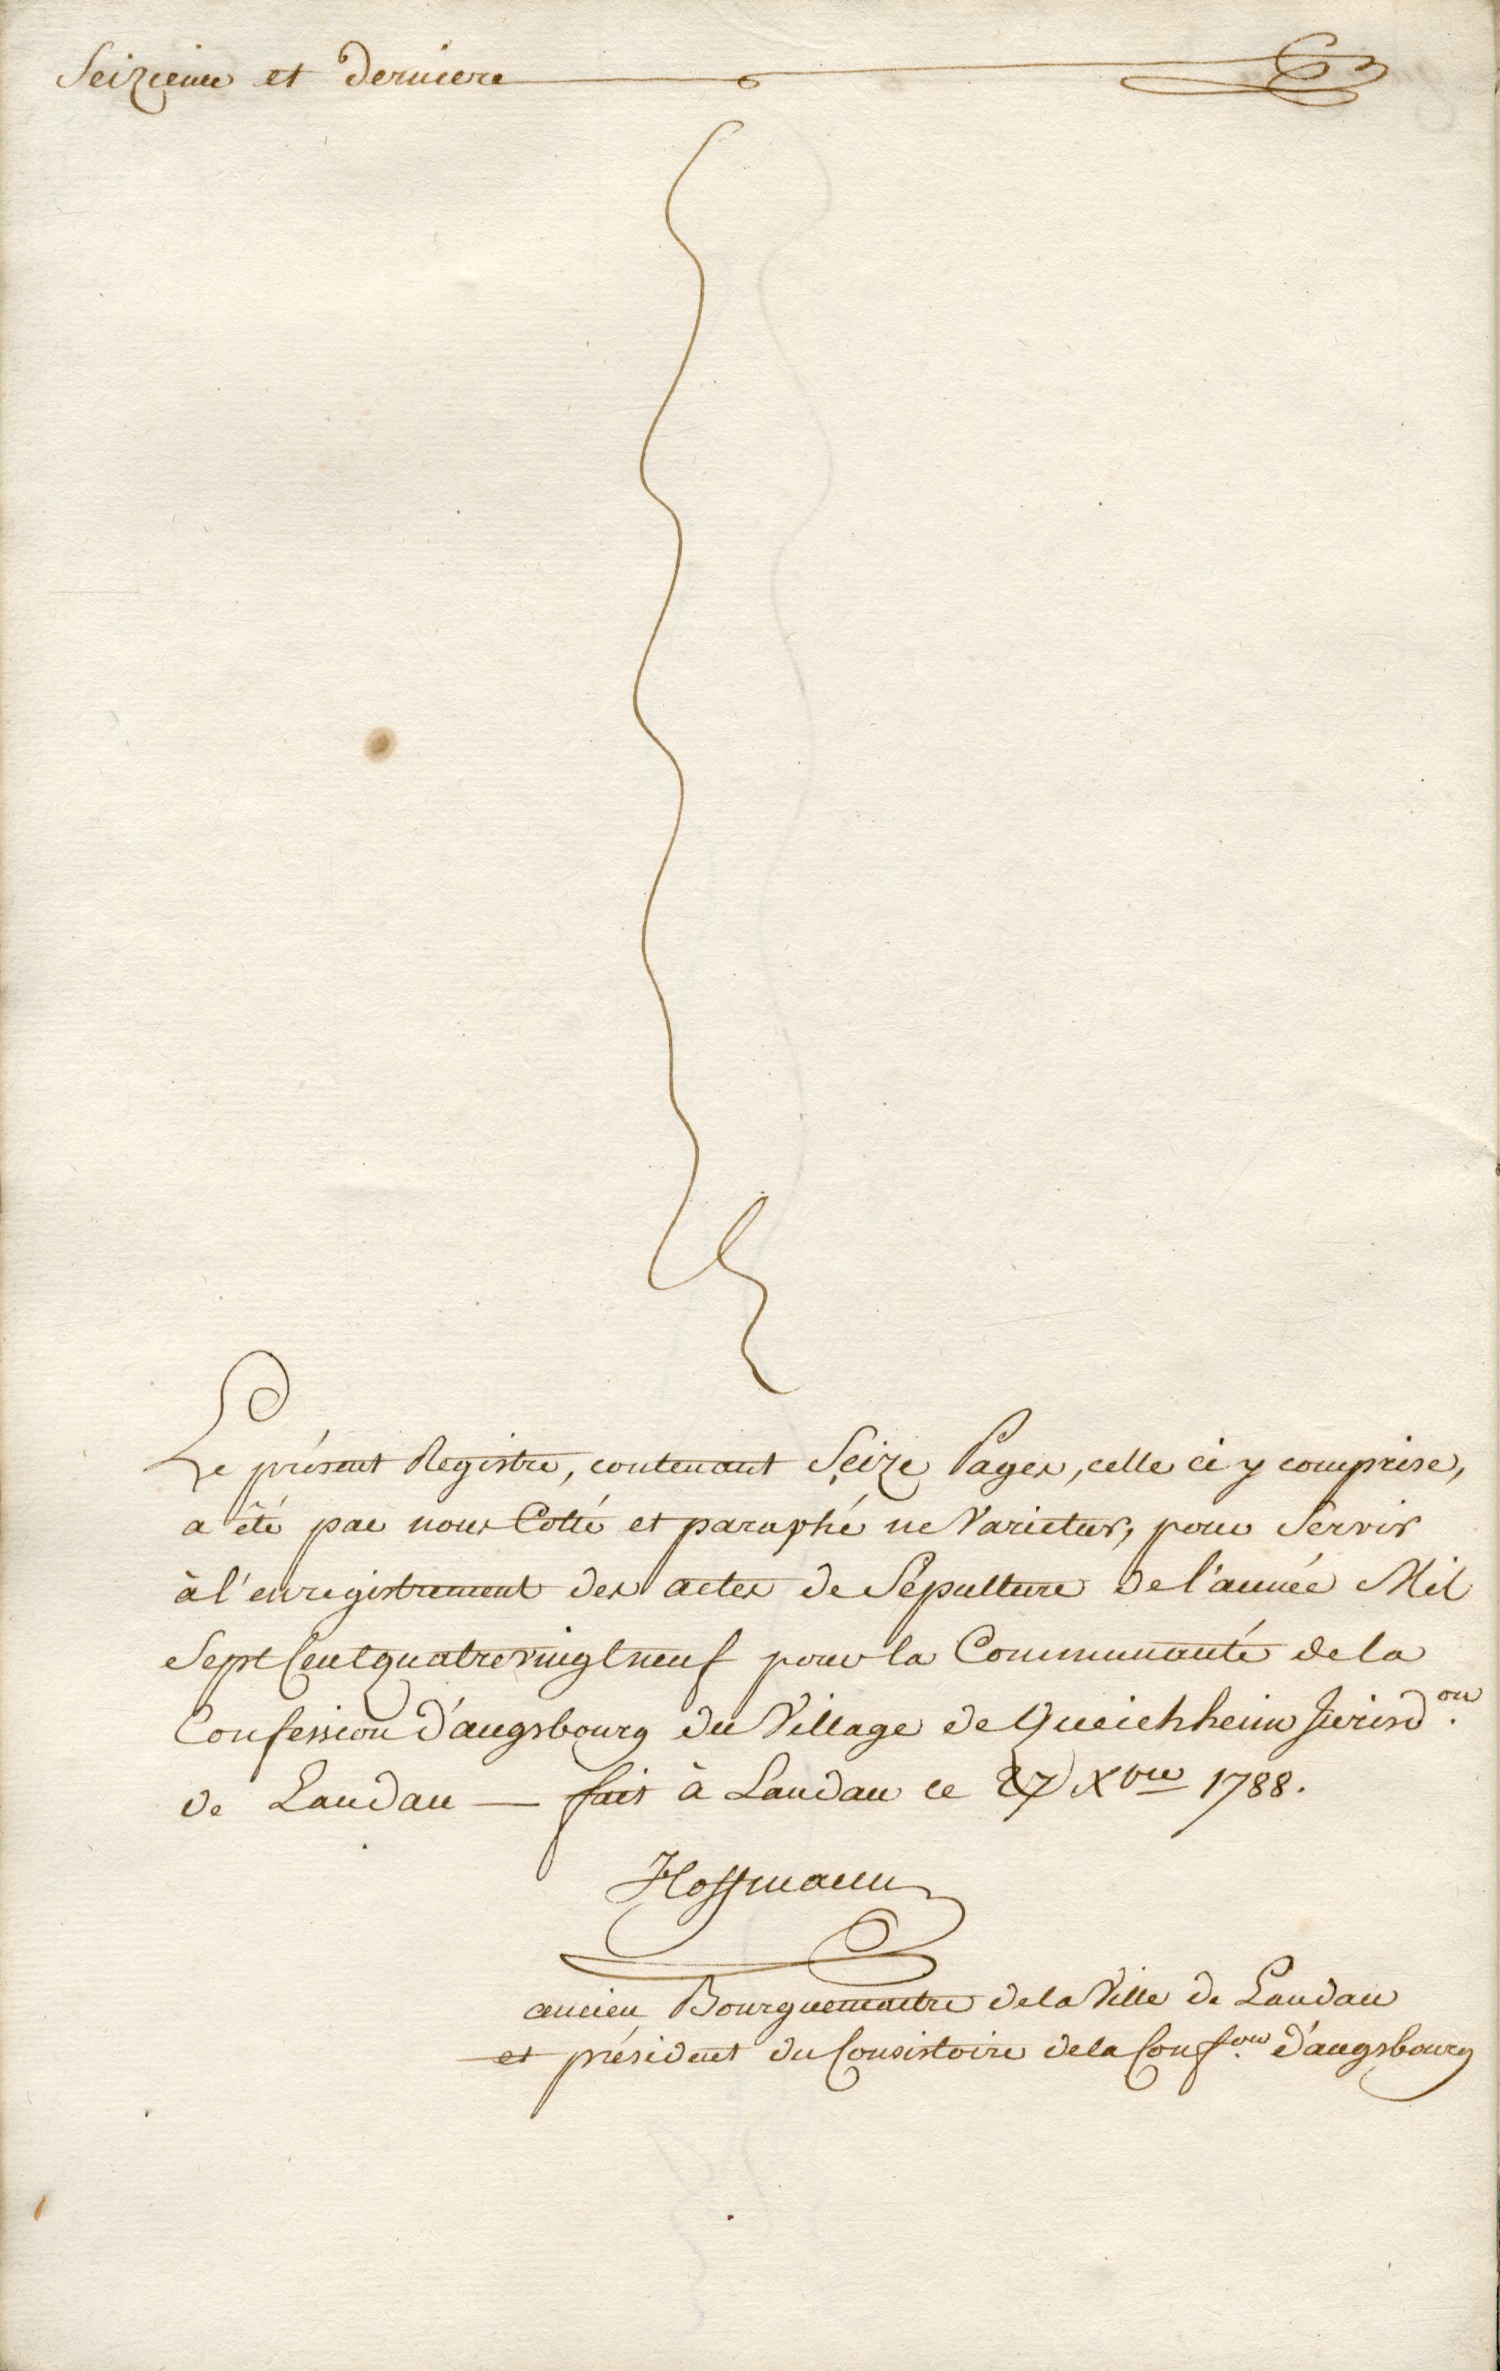 Seizieme et derniere
Le présent Registre, contenant Seize Pages, celle ci y comprise,
a été par nous Cotté et paraphé ne Varietur, pour Servir
à l'enregistrement des actes de Sépulture de l'année Mil
Sept Cent quatrevingt neuf pour la Communauté de la
Confession d'augsbourg du Village de Queichheim Jurisd.on
de Landau — fait à Landau ce 27 Xbre 1788.
Hoffmann
ancien Bourguemaitre de la Ville de Landau
et président du Consistoire de la Conf.on d'augsbourg